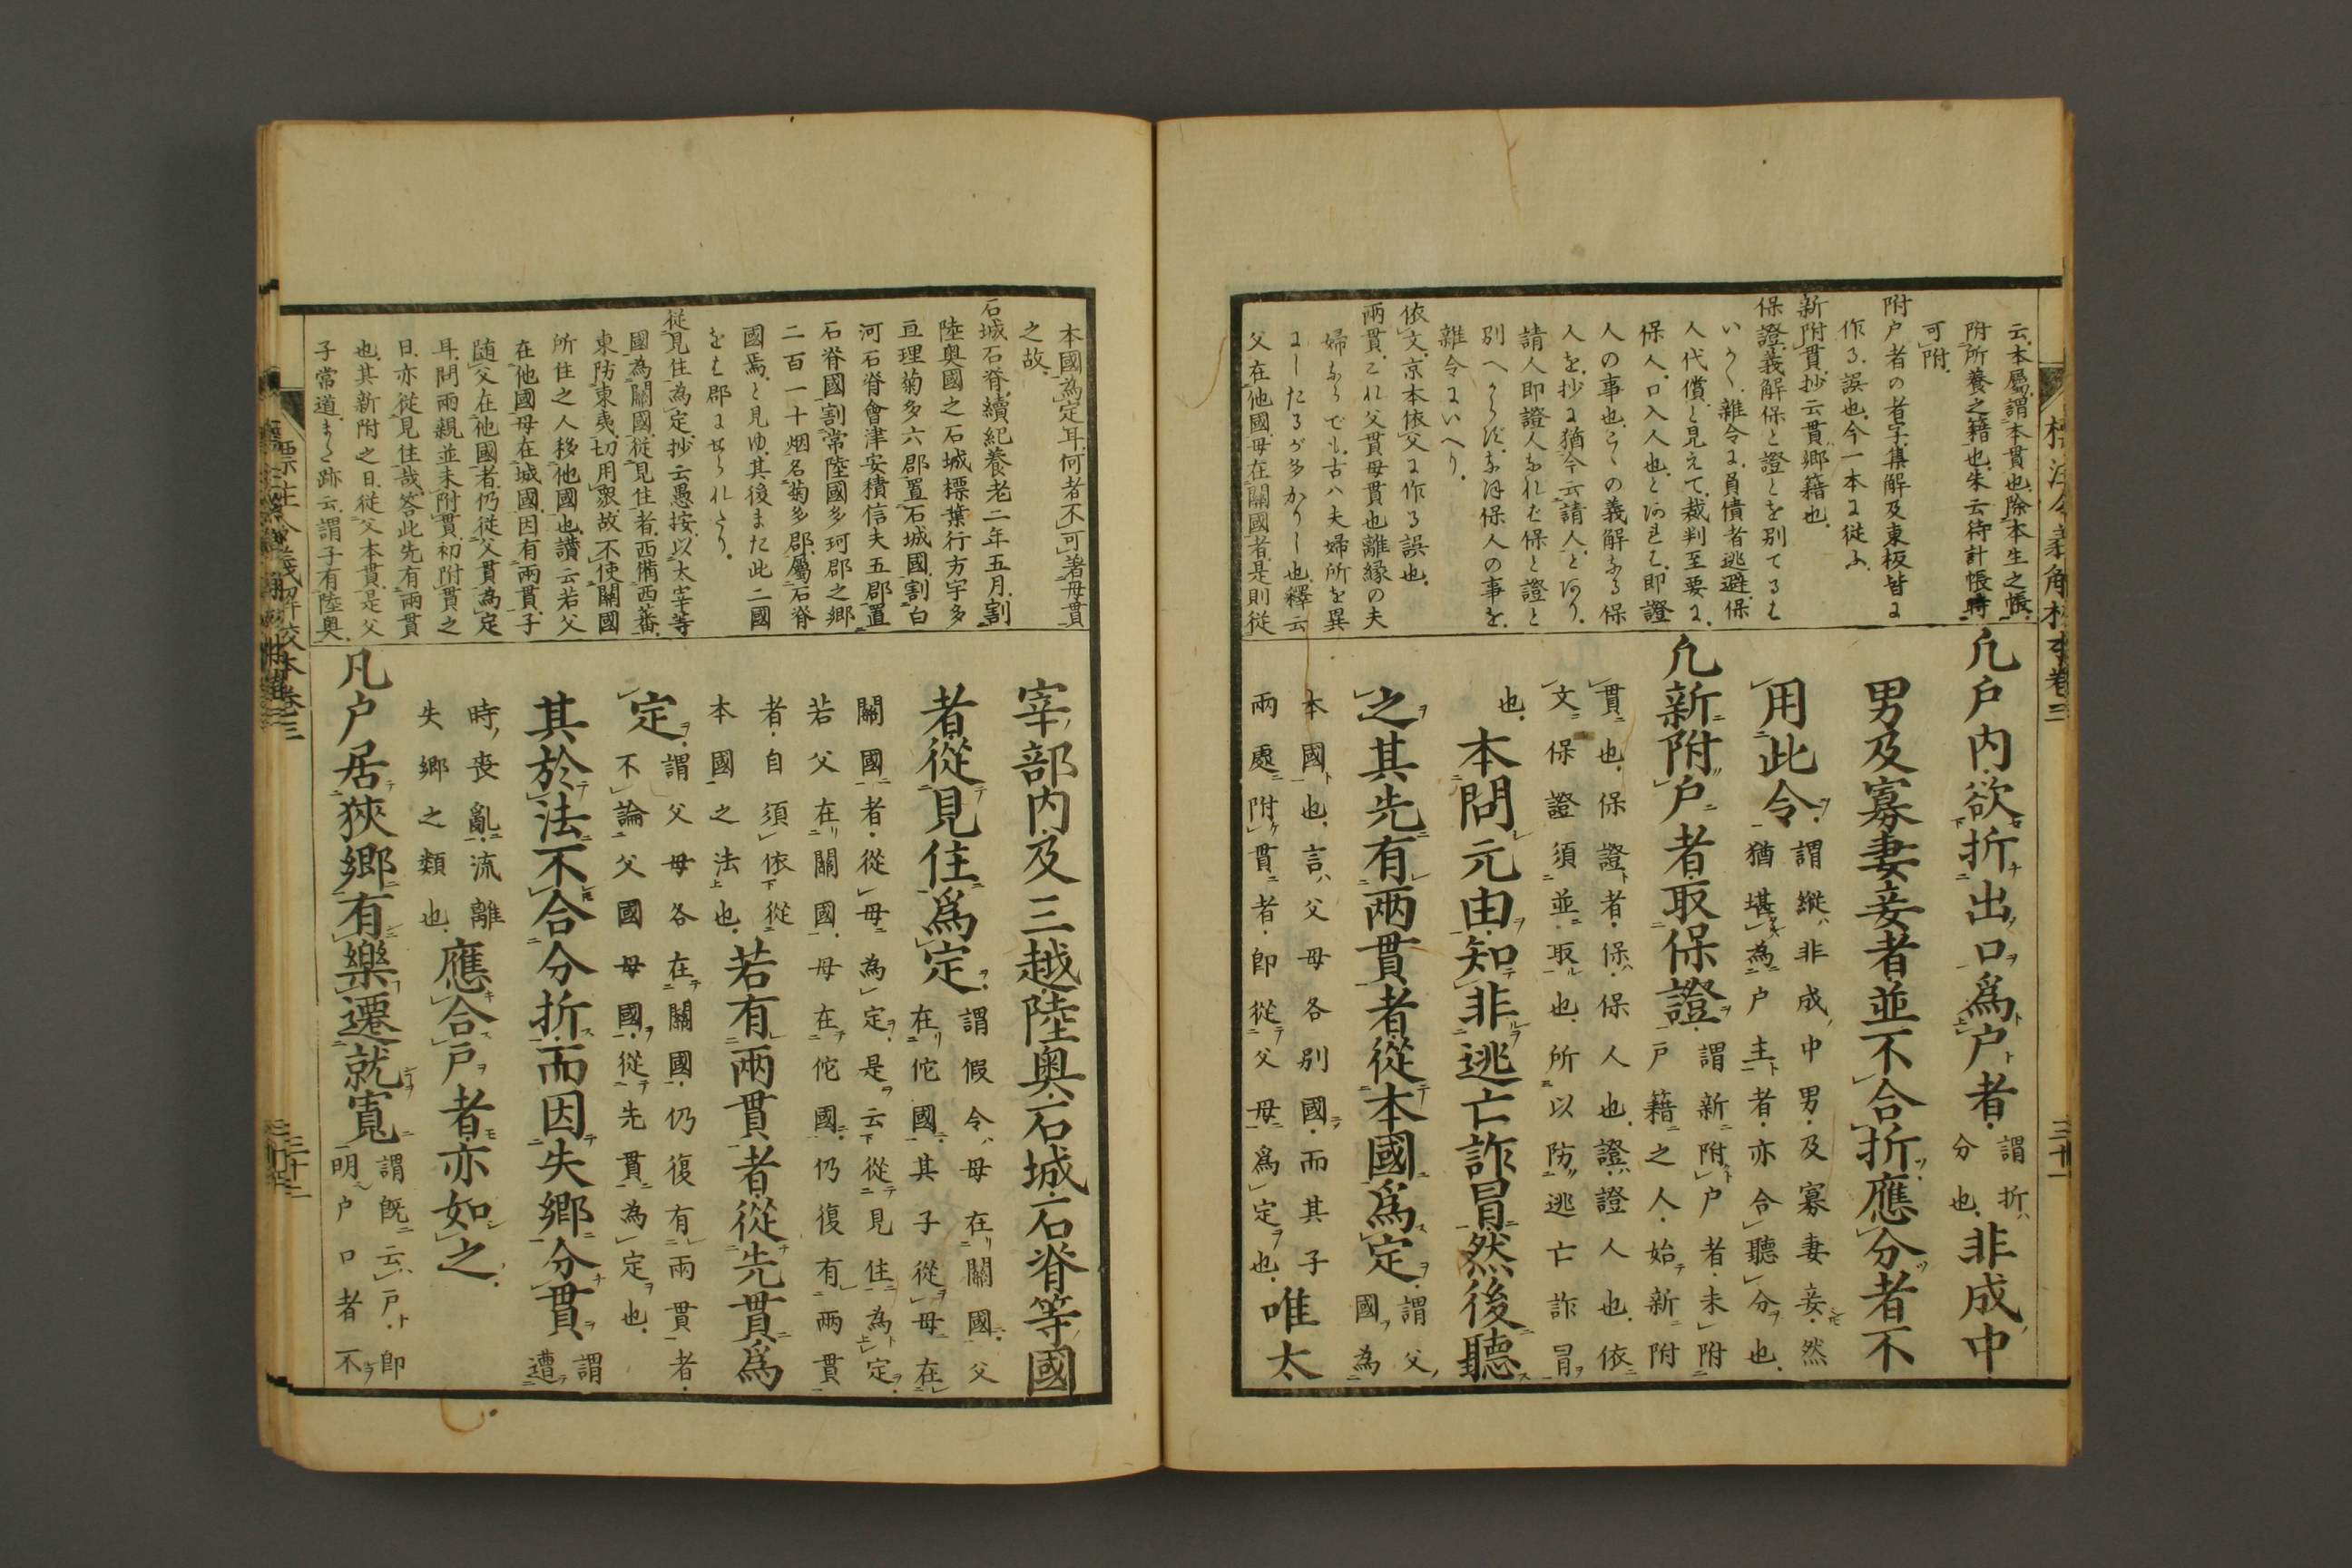 云、本屬、謂本貫也、除本生之帳、
附所養之籍也、朱云待計帳時
可附、
附户者の者字、集解及東板皆に
作る、誤也、今一本に從ふ、
新附貫、抄云貫、鄉籍也、
保證、義解保と證とを別てるも
いかゝ、雜令に、負債者逃避、保
人代償、と見えて、裁判至要に、
保人、口入人也、とあれは、即證
人の事也、こゝの義解なる保
人を、抄に猶今云請人、とあり、
請人即證人なれは保と證と
別へからす、なほ保人の事を、
雜令にいへり、
依文、京本依父に作る誤也、
兩貫、これ父貫母貫也離緣の夫
婦ならでも、古八夫婦所を異
にしたるが多かりし也、釋云
父在他國、母在關國者、是則從
凡户内、欲折出口爲户者、
謂折、
分也、
非成中
男及寡妻妾者、並不合折、應分者、不
用此令、
謂縱非成中男、及寡妻妾、然
猶堪為户主者、亦合聽分也、
凡新附户者、取保證、
謂新附户者、未附
户籍之人、始新附
貫也、保證者、保、保人也、證、證人也、依
文、保證須並取也、所以防逃亡詐冒
也、
本問元由、知非逃亡詐冒、然後聽
之、其先有兩貫者、從本國爲定、
謂父
國為
本國也、言父母各別國、而其子
兩處附貫者、即從父母爲定也、
唯太
本國為定耳、何者不可著母貫
之故、
石城石脊、續紀養老二年五月、割
陸奧國之石城標葉行方宇多
亘理菊多六郡、置石城國、割白
河石脊會津安積信夫五郡、置
石脊國、割常陸國多珂郡之鄉
二百一十烟、名菊多郡、屬石脊
國焉、と見ゆ、其後また此二國
をも郡にせられたり、
從見住為定、抄云愚按、以太宰等
國為關國、從見住者、西備西蕃、
東防東夷、切用衆、故不使關國
所住之人移他國也、讃云若父
在他國、母在城國、因有兩貫、子
随父在他國者、仍從父貫為定
耳、問兩親並未附貫、初附貫之
日、亦從見住哉、答此先有兩貫
也、其新附之日、從父本貫、是父
子常道、また跡云、謂子有陸奧、
宰部内、及三越陸奧石城石脊等國
者、從見住爲定、
謂假令、母在關國、父
在佗國、其子從母在
關國者、從母為定、是云從見住為定、
若父在關國、母在佗國、仍復有兩貫
者、自須依從
本國之法也、
若有兩貫者、從先貫爲
定、
謂父母各在關國、仍復有兩貫者、
不論父國母國、從先貫為定也、
其於法不合分折、而因失鄉分貫、
謂
遭
時喪亂、流離
失鄉之類也、
應合户者、亦如之、
凡户居狹鄉、有樂遷就寬、
謂既云户、即
明户口者不